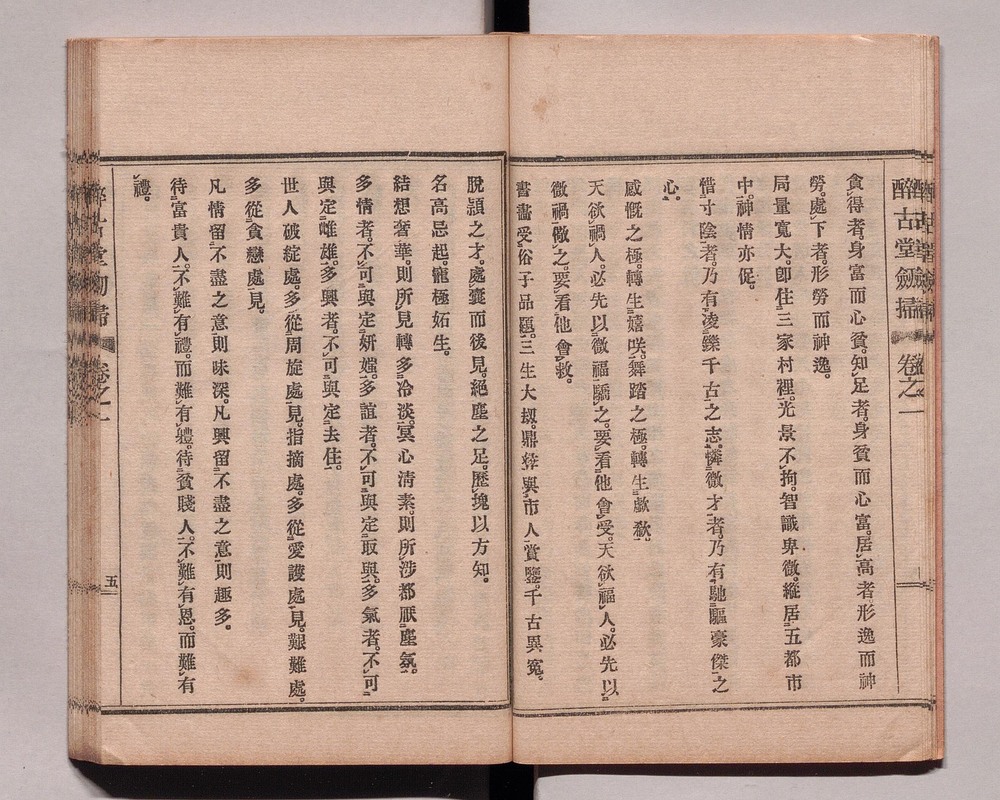 醉古堂劍掃 卷之一
貪得者身富而心貧。知足者身貧而心富。居高者形逸而神
勞。處下者形勞而神逸。
局量寬大。卽住三家村裡。光景不拘。智識卑微。縱居五都市
中。神情亦促。
惜寸陰者。乃有凌鑠千古之志。憐微才者。乃有馳驅豪傑之
心。
感慨之極。轉生嬉咲。舞蹈之極。轉生歔欷。
天欲禍人。必先以微福驕之。要看他會受。天欲福人。必先以
微禍儆之。要看他會救。
書畫受俗子品題。三生大刼。鼎彜與市人賞鑒。千古異冤。
脫頴之才。處囊而後見。絕塵之足。歷塊以方知。
名高忌起。寵極妬生。
結想奢華。則所見轉多冷淡。冥心淸素。則所涉都厭塵氛。
多情者。不可與定妍媸。多誼者。不可與定取與。多氣者。不可
與定雌雄。多興者。不可與定去住。
世人破綻處。多從周旋處見。指摘處。多從愛護處見。艱難處。
多從貪戀處見。
凡情留不盡之意則味深。凡興留不盡之意則趣多。
待富貴人。不難有禮。而難有體。待貧賤人。不難有恩。而難有
禮。
卷之一
五